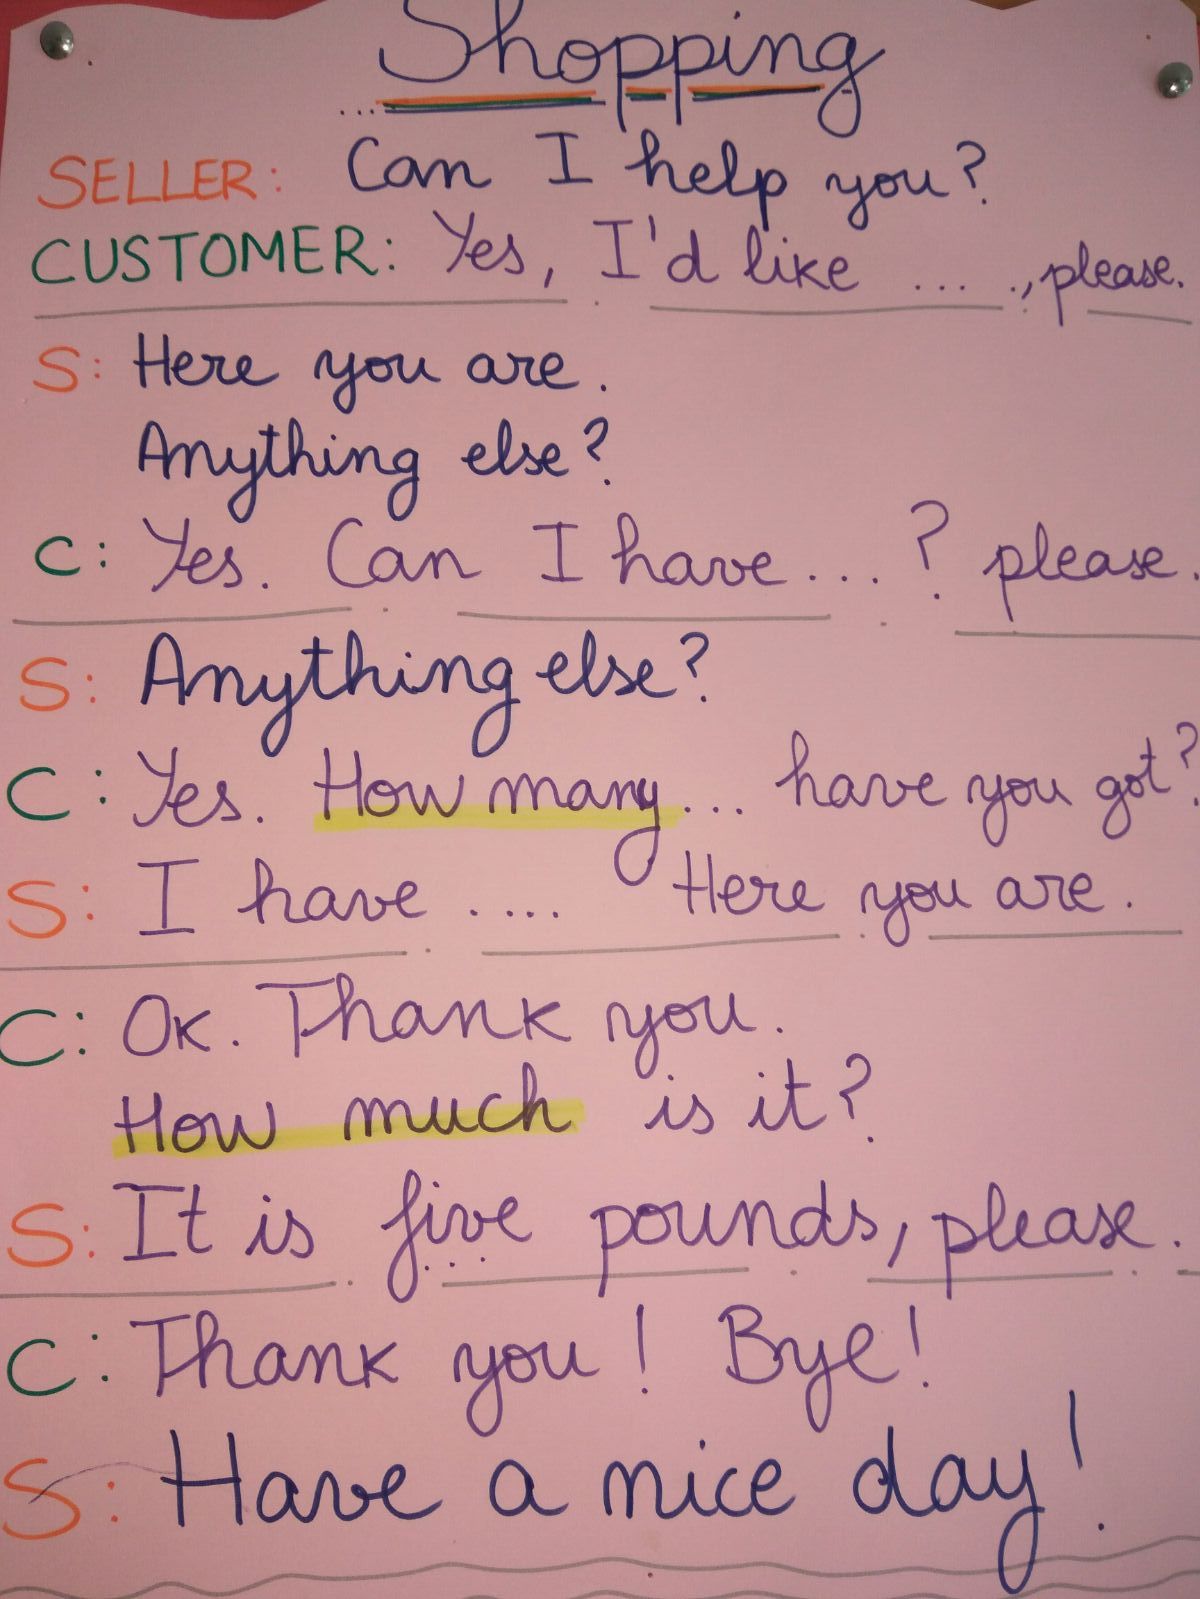 Shopping
SELLER: Can I help you?
CUSTOMER: Yes, I'd like ... ., please.
S: Here you are.
Anything else?
C: Yes. Can I have ... ? please.
S: Anything else?
C: Yes. How many ... have you got?
S: I have .... Here you are.
C: Ok. Thank you.
How much is it?
S: It is five pounds, please.
C: Thank you! Bye!
S: Have a nice day!